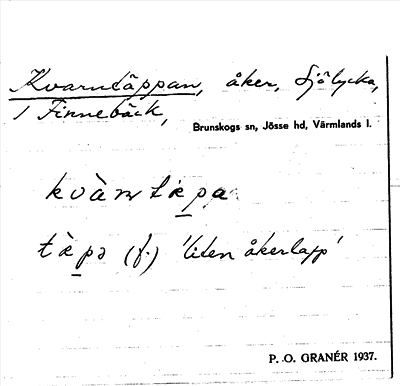 Kvarntäppan, åker, Sjölycka,
1 Finnebäck,
Brunskogs sn, Jösse hd, Värmlands l.
kvàrntæpa
tæ̀pə (f.) 'liten åkerlapp'
P. O. GRANÉR 1937.